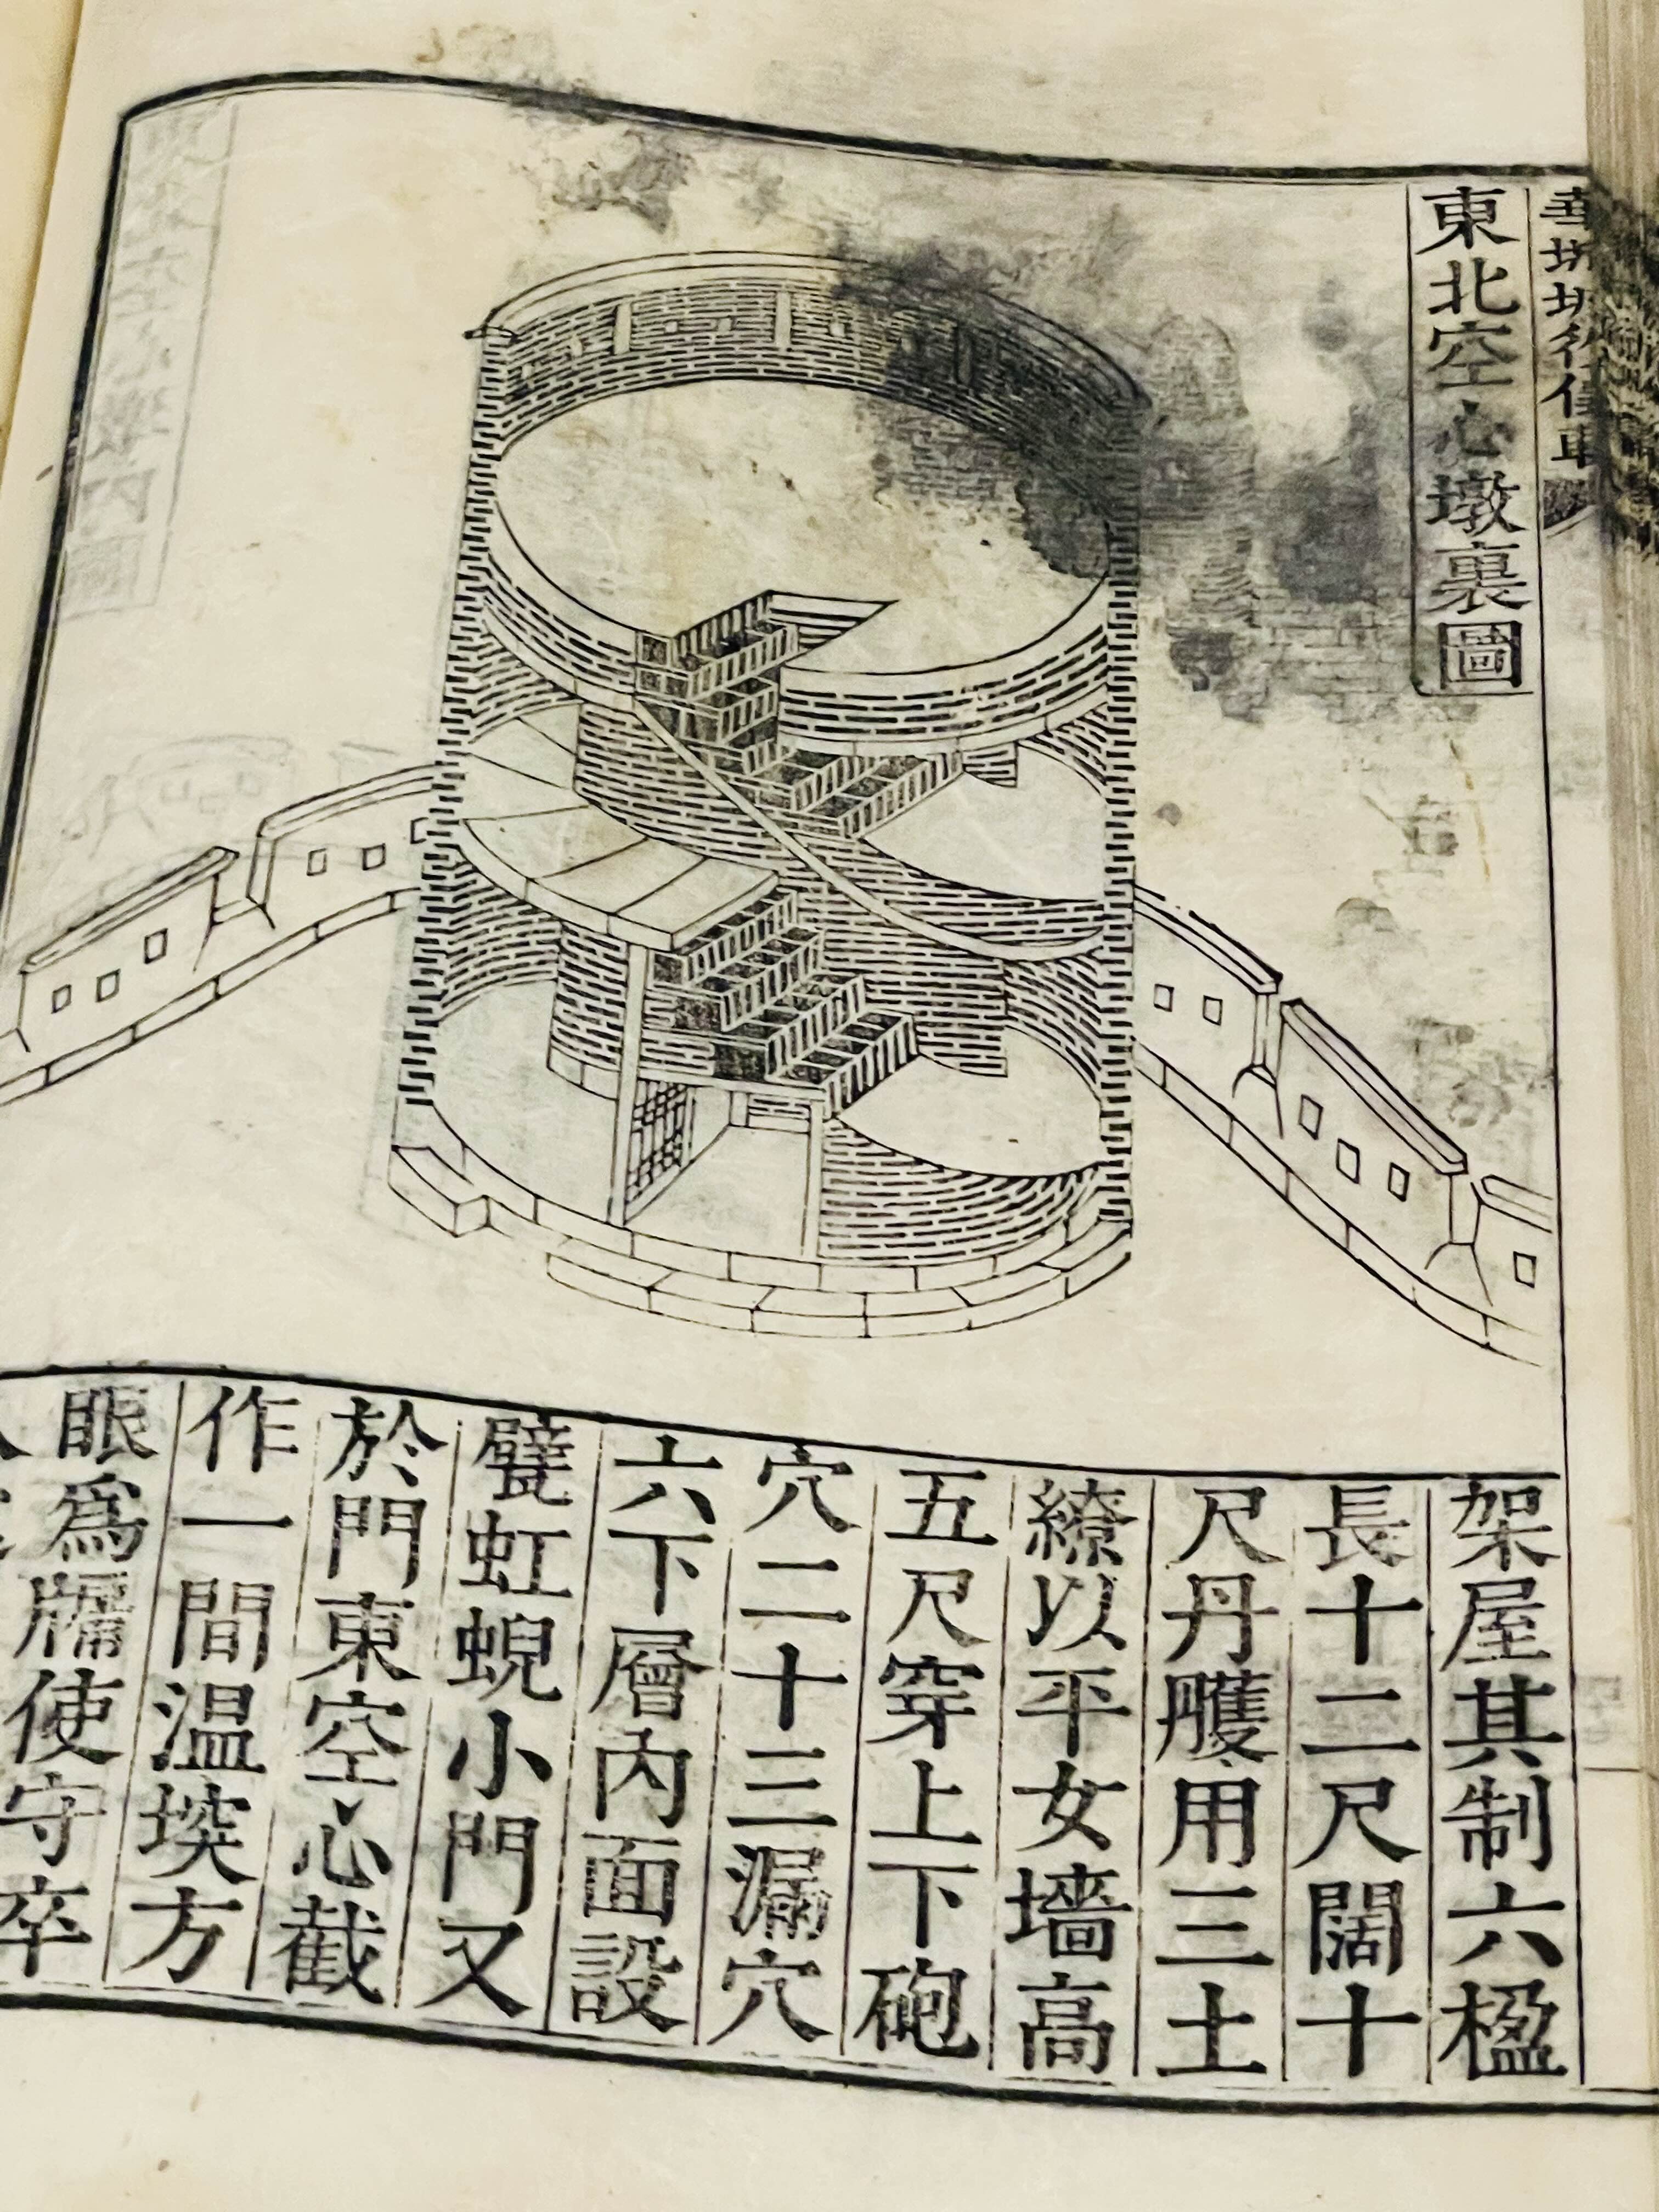 東北空心墩裏圖
架屋其制六楹
長十二尺闊十
尺丹雘用三土
繚以平女墻高
五尺穿上下砲
穴二十三漏穴
六下層內面設
甓虹蜺小門又
於門東空心截
作一間温堗方
眼爲牖使守卒